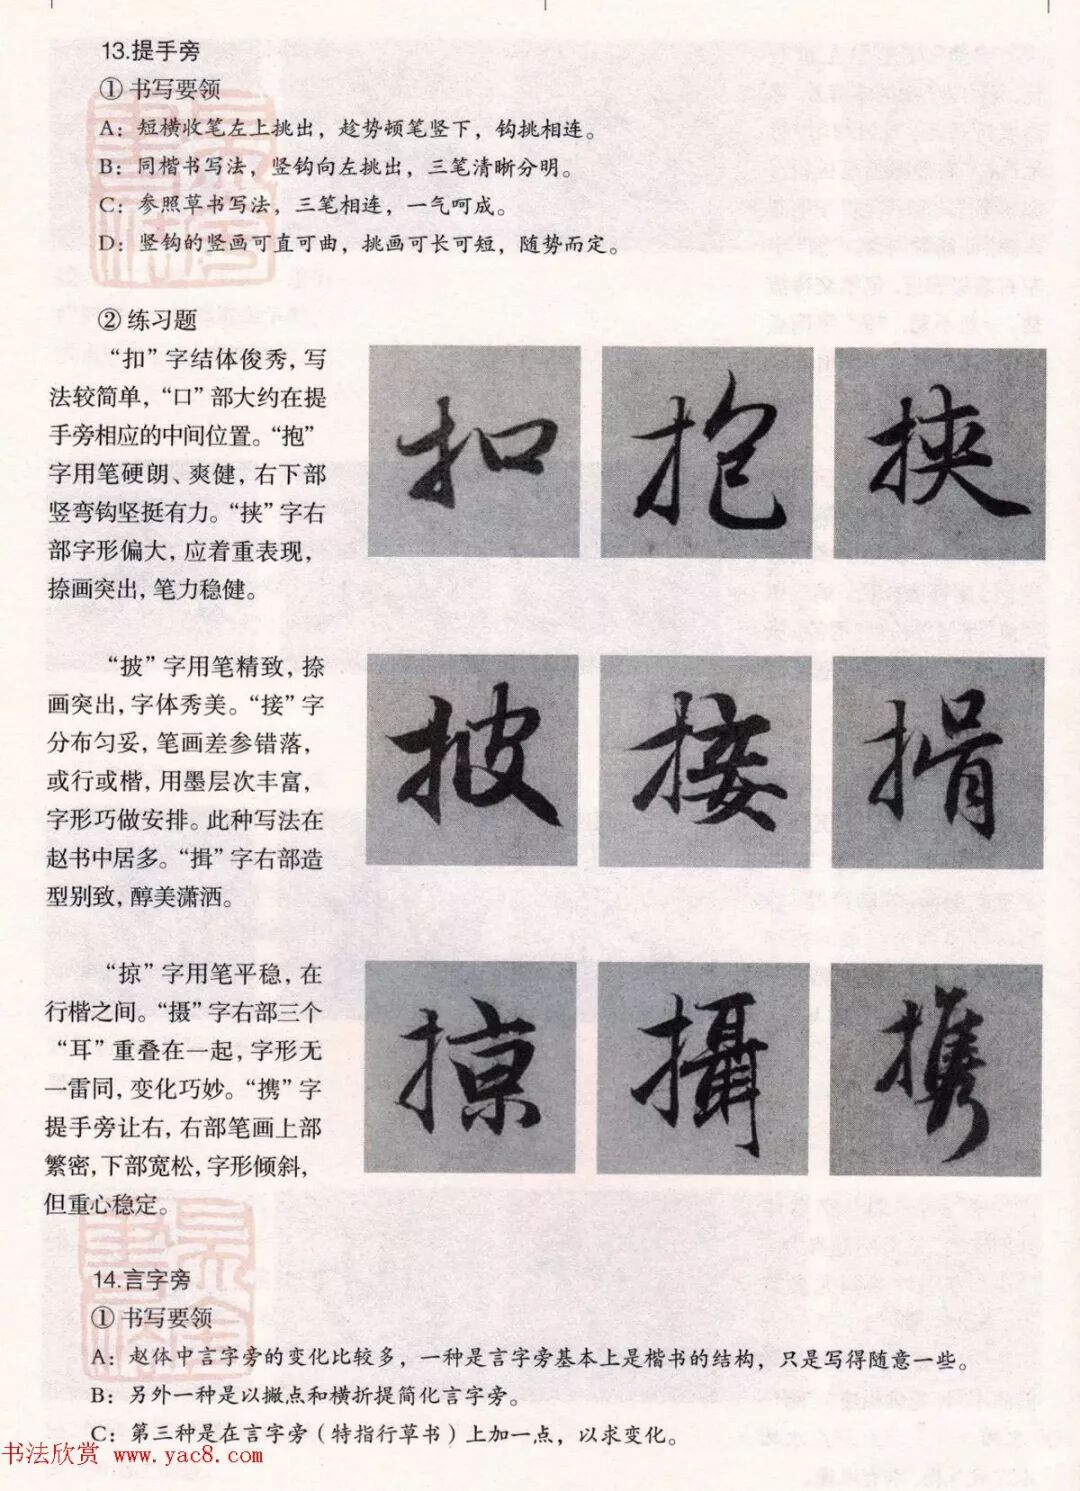 13.提手旁
① 书写要领
A：短横收笔左上挑出，趁势顿笔竖下，钩挑相连。
B：同楷书写法，竖钩向左挑出，三笔清晰分明。
C：参照草书写法，三笔相连，一气呵成。
D：竖钩的竖画可直可曲，挑画可长可短，随势而定。
② 练习题
“扣”字结体俊秀，写
法较简单，“口”部大约在提
手旁相应的中间位置。“抱”
字用笔硬朗、爽健，右下部
竖弯钩坚挺有力。“挟”字右
部字形偏大，应着重表现，
捺画突出，笔力稳健。
扣 抱 挾
“披”字用笔精致，捺
画突出，字体秀美。“接”字
分布匀妥，笔画差参错落，
或行或楷，用墨层次丰富，
字形巧做安排。此种写法在
赵书中居多。“揖”字右部造
型别致，醇美潇洒。
披 接 揖
“掠”字用笔平稳，在
行楷之间。“摄”字右部三个
“耳”重叠在一起，字形无
一雷同，变化巧妙。“携”字
提手旁让右，右部笔画上部
繁密，下部宽松，字形倾斜，
但重心稳定。
掠 攝 携
14.言字旁
① 书写要领
A：赵体中言字旁的变化比较多，一种是言字旁基本上是楷书的结构，只是写得随意一些。
B：另外一种是以撇点和横折提简化言字旁。
C：第三种是在言字旁（特指行草书）上加一点，以求变化。
书法欣赏 www.yac8.com